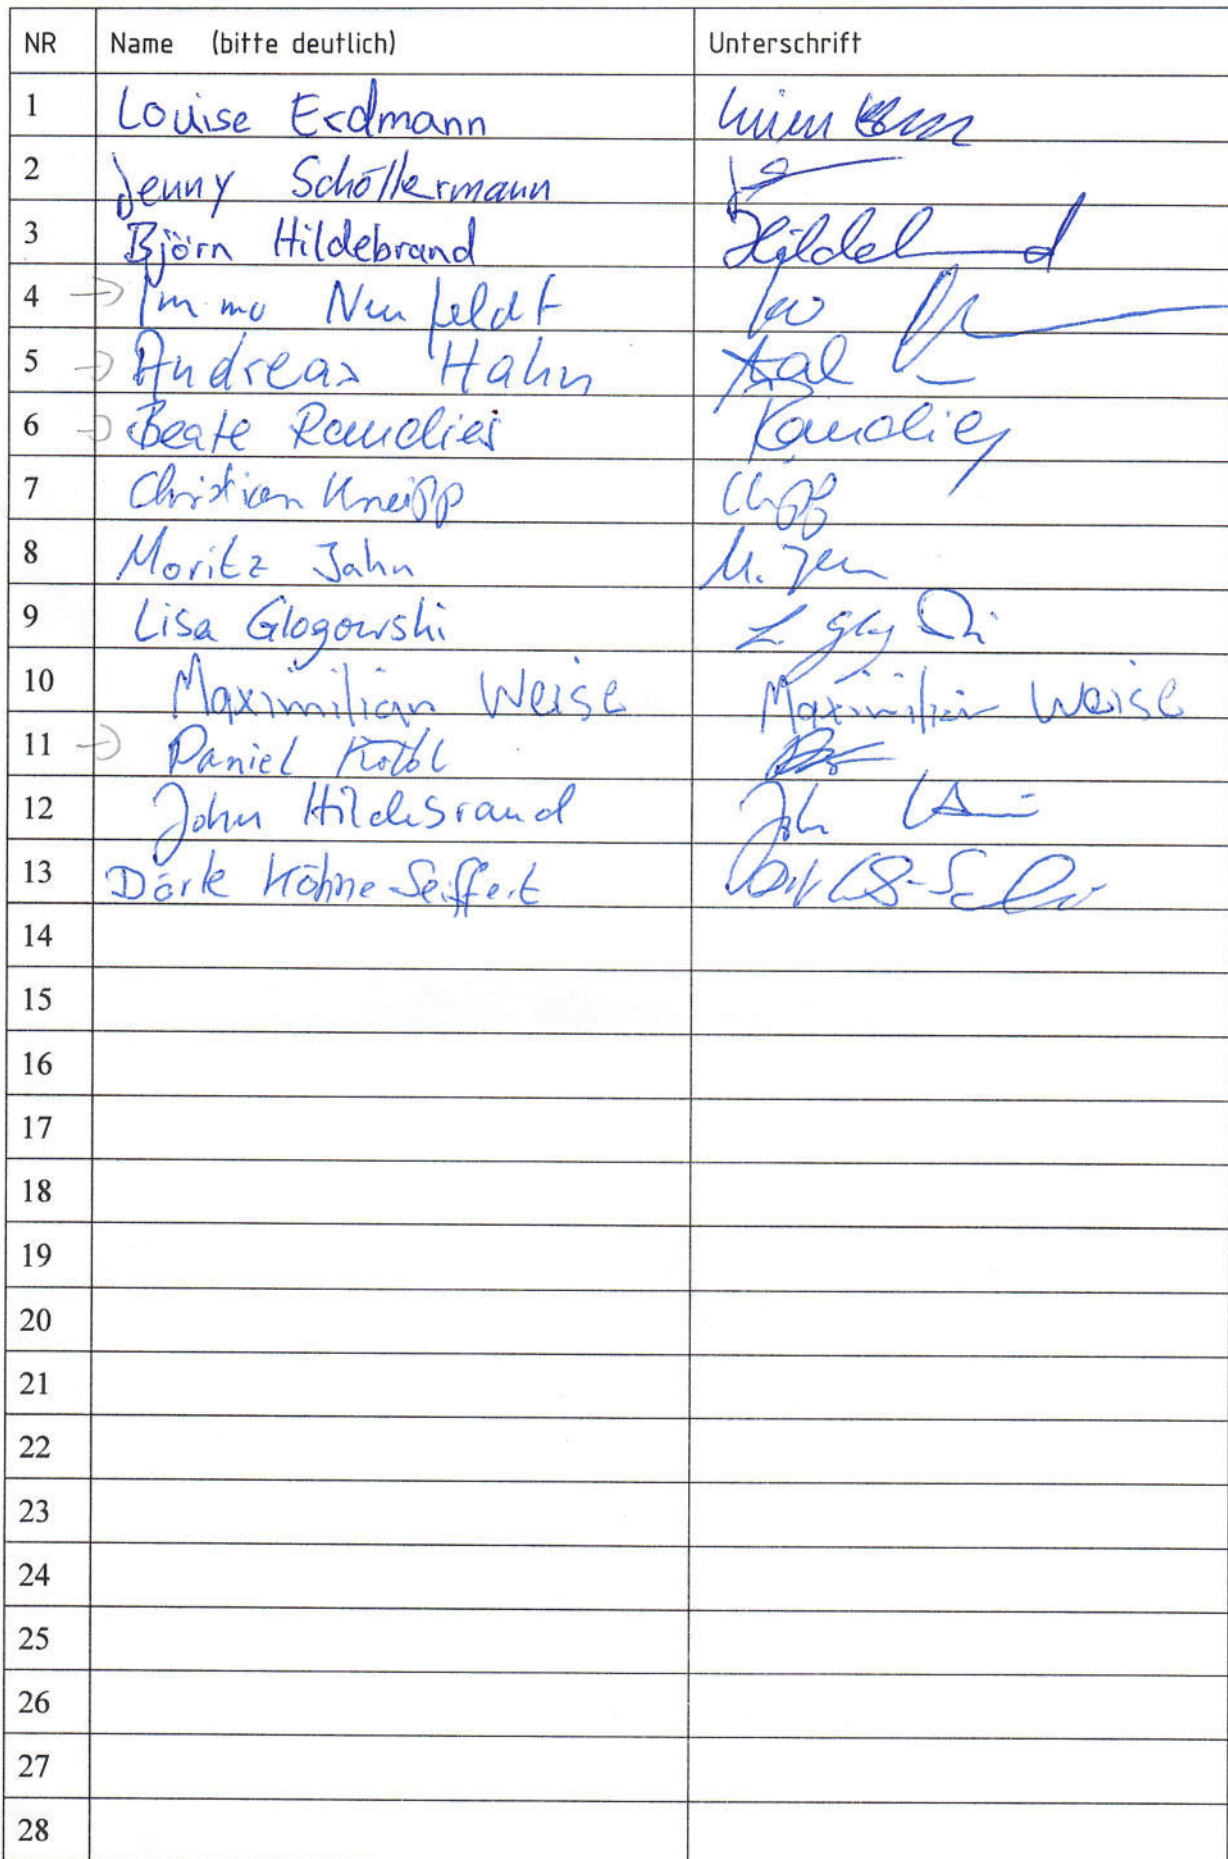 NR Name (bitte deutlich) Unterschrift
1 Louise Erdmann
2 Jenny Schöllermann
3 Björn Hildebrand Hildebrand
4 → Immo Neufeldt
5 → Andreas Hahn
6 → Beate Ramdies Ramdies
7 Christian Kneipp
8 Moritz Jahn M. Jahn
9 Lisa Glogowski
10 Maximilian Weise Maximilian Weise
11 → Daniel
12 John Hildebrand John
13 Dörte Köhne-Seiffert
14
15
16
17
18
19
20
21
22
23
24
25
26
27
28